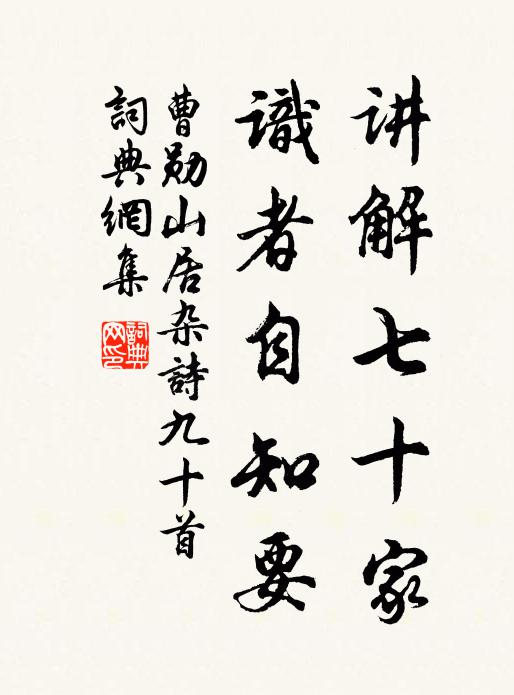 讲解七十家
識者自知要
曹勋山居杂詩九十首
詞典網集
詞典网印